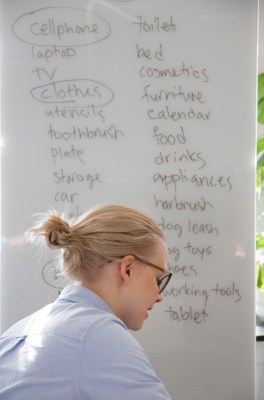 cellphone
laptop
TV
clothes
utensils
toothbrush
plate
storage
car
toilet
bed
cosmetics
furniture
calendar
food
drinks
appliances
harbrush
dog leash
dog toys
shoes
working tools
tablet